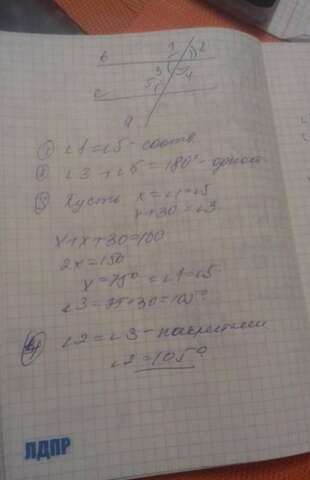 1 2
b
3 4
c 5
a
1) ∠1=∠5 - соотв.
2) ∠3+∠5=180° - однос
3) Пусть x=∠1=∠5
x+30=∠3
x+x+30=180
2x=150
x=75° =∠1=∠5
∠3=75+30=105°
4) ∠2=∠3 -
∠2=105°
ЛДПР